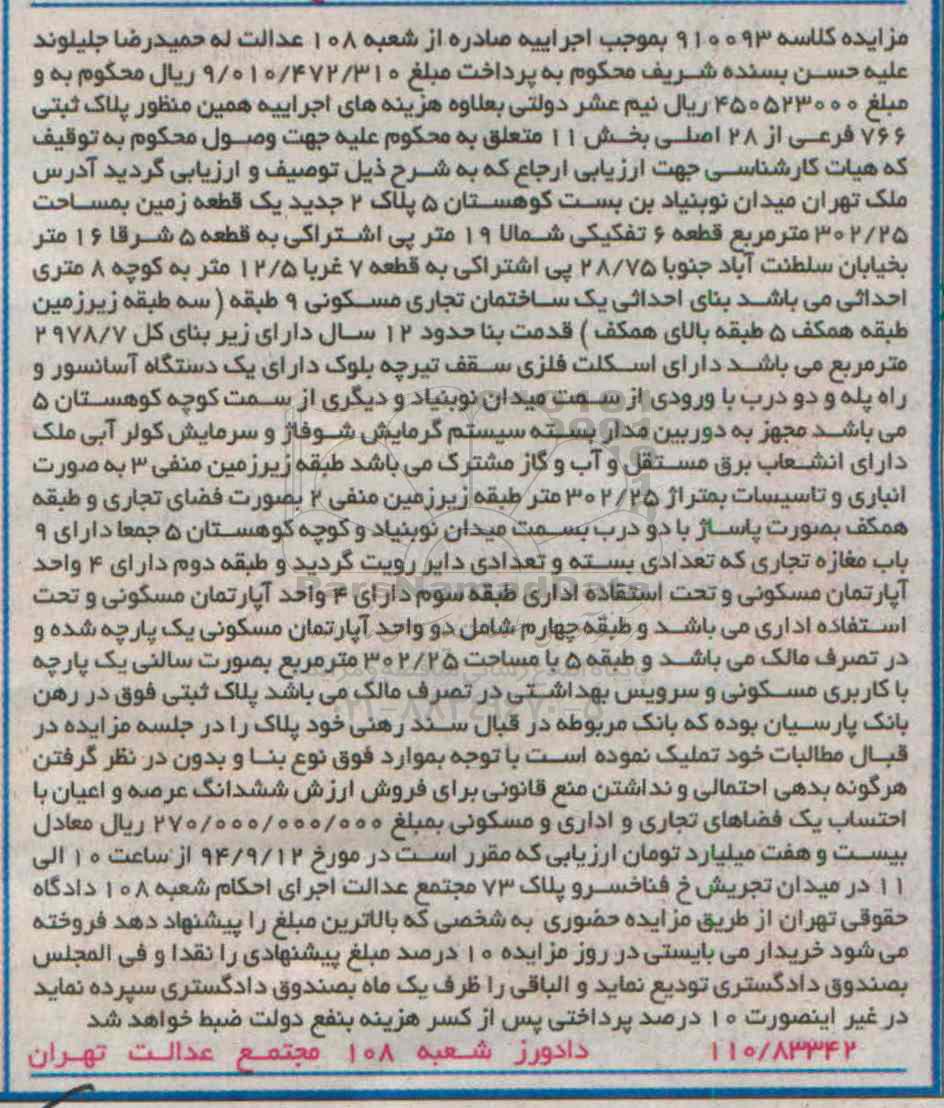 مزایده کلاسه ۹۱۰۰۹۳ بموجب اجراییه صادره از شعبه ۱۰۸ عدالت له حمیدرضا جلیلوند
علیه حسن بسنده شریف محکوم به پرداخت مبلغ ۹/۰۱۰/۴۷۲/۳۱۰ ریال محکوم به و
مبلغ ۴۵۰۵۲۳۰۰۰ ریال نیم عشر دولتی بعلاوه هزینه های اجراییه همین منظور پلاک ثبتی
۷۶۶ فرعی از ۲۸ اصلی بخش ۱۱ متعلق به محکوم علیه جهت وصول محکوم به توقیف
که هیات کارشناسی جهت ارزیابی ارجاع که به شرح ذیل توصیف و ارزیابی گردید آدرس
ملک تهران میدان نوبنیاد بن بست کوهستان ۵ پلاک ۲ جدید یک قطعه زمین بمساحت
۳۰۲/۲۵ مترمربع قطعه ۶ تفکیکی شمالا ۱۹ متر پی اشتراکی به قطعه ۵ شرقا ۱۶ متر
بخیابان سلطنت آباد جنوبا ۲۸/۷۵ پی اشتراکی به قطعه ۷ غربا ۱۲/۵ متر به کوچه ۸ متری
احداثی می باشد بنای احداثی یک ساختمان تجاری مسکونی ۹ طبقه ( سه طبقه زیرزمین
طبقه همکف ۵ طبقه بالای همکف ) قدمت بنا حدود ۱۲ سال دارای زیر بنای کل ۲۹۷۸/۷
مترمربع می باشد دارای اسکلت فلزی سقف تیرچه بلوک دارای یک دستگاه آسانسور و
راه پله و دو درب با ورودی از سمت میدان نوبنیاد و دیگری از سمت کوچه کوهستان ۵
می باشد مجهز به دوربین مدار بسته سیستم گرمایش شوفاژ و سرمایش کولر آبی ملک
دارای انشعاب برق مستقل و آب و گاز مشترک می باشد طبقه زیرزمین منفی ۳ به صورت
انباری و تاسیسات بمتراژ ۳۰۲/۲۵ متر طبقه زیرزمین منفی ۲ بصورت فضای تجاری و طبقه
همکف بصورت پاساژ با دو درب بسمت میدان نوبنیاد و کوچه کوهستان ۵ جمعا دارای ۹
باب مغازه تجاری که تعدادی بسته و تعدادی دایر رویت گردید و طبقه دوم دارای ۴ واحد
آپارتمان مسکونی و تحت استفاده اداری طبقه سوم دارای ۴ واحد آپارتمان مسکونی و تحت
استفاده اداری می باشد و طبقه چهارم شامل دو واحد آپارتمان مسکونی یک پارچه شده و
در تصرف مالک می باشد و طبقه ۵ با مساحت ۳۰۲/۲۵ مترمربع بصورت سالنی یک پارچه
با کاربری مسکونی و سرویس بهداشتی در تصرف مالک می باشد پلاک ثبتی فوق در رهن
بانک پارسیان بوده که بانک مربوطه در قبال سند رهنی خود پلاک را در جلسه مزایده در
قبال مطالبات خود تملیک نموده است با توجه بموارد فوق نوع بنا و بدون در نظر گرفتن
هرگونه بدهی احتمالی و نداشتن منع قانونی برای فروش ارزش ششدانگ عرصه و اعیان با
احتساب یک فضاهای تجاری و اداری و مسکونی بمبلغ ۲۷۰/۰۰۰/۰۰۰/۰۰۰ ریال معادل
بیست و هفت میلیارد تومان ارزیابی که مقرر است در مورخ ۹۴/۹/۱۲ از ساعت ۱۰ الی
۱۱ در میدان تجریش خ فناخسرو پلاک ۷۳ مجتمع عدالت اجرای احکام شعبه ۱۰۸ دادگاه
حقوقی تهران از طریق مزایده حضوری به شخصی که بالاترین مبلغ را پیشنهاد دهد فروخته
می شود خریدار می بایستی در روز مزایده ۱۰ درصد مبلغ پیشنهادی را نقدا و فی المجلس
بصندوق دادگستری تودیع نماید و الباقی را ظرف یک ماه بصندوق دادگستری سپرده نماید
در غیر اینصورت ۱۰ درصد پرداختی پس از کسر هزینه بنفع دولت ضبط خواهد شد
۱۱۰/۸۳۳۴۲ دادورز شعبه ۱۰۸ مجتمع عدالت تهران
ParsNamadData